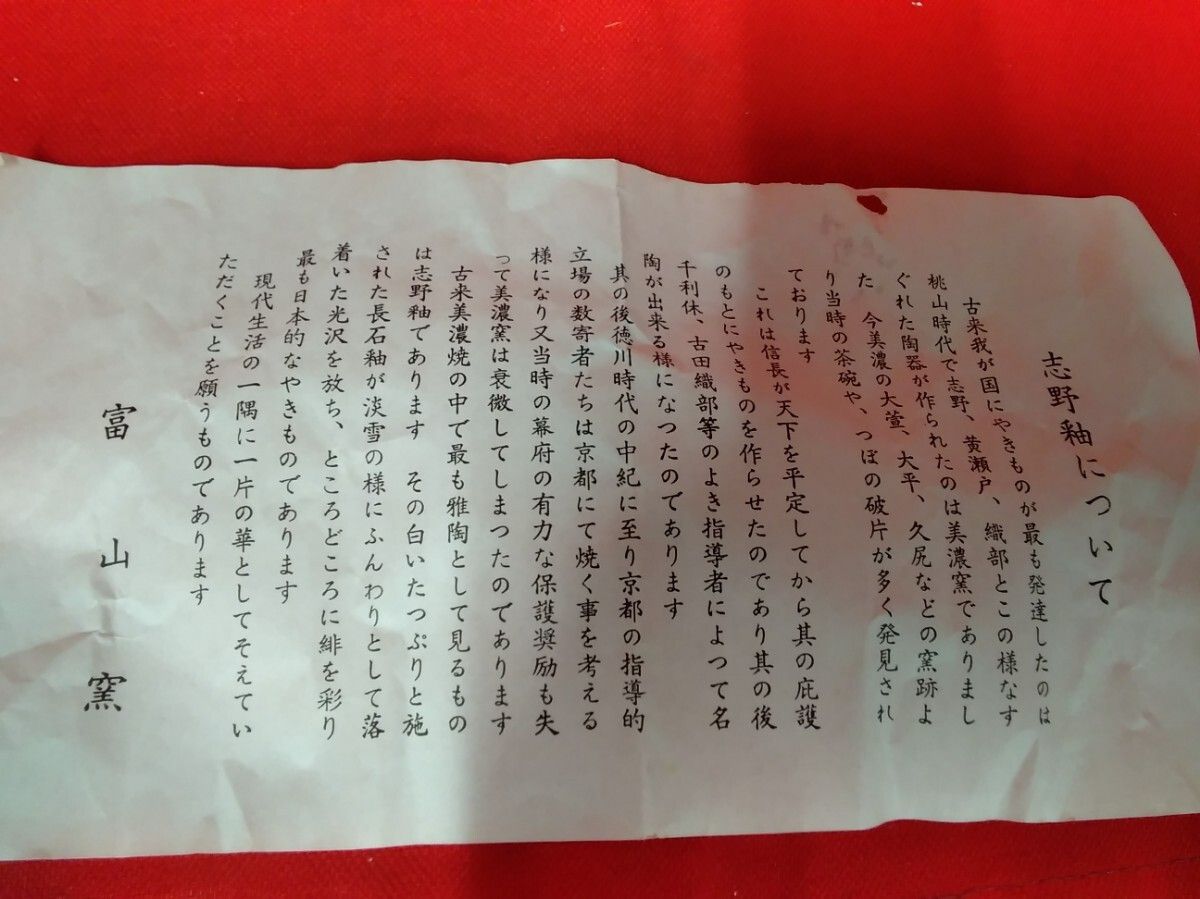 志野釉について
古来我が国にやきものが最も発達したのは
桃山時代で志野、黄瀬戸、織部とこの様なす
ぐれた陶器が作られたのは美濃窯でありまし
た 今美濃の大萱、大平、久尻などの窯跡よ
り当時の茶碗や、つぼの破片が多く発見され
ております
これは信長が天下を平定してから其の庇護
のもとにやきものを作らせたのであり其の後
千利休、古田織部等のよき指導者によつて名
陶が出来る様になつたのであります
其の後徳川時代の中紀に至り京都の指導的
立場の数寄者たちは京都にて焼く事を考える
様になり又当時の幕府の有力な保護奨励も失
って美濃窯は衰微してしまつたのであります
古来美濃焼の中で最も雅陶として見るもの
は志野釉であります その白いたつぷりと施
された長石釉が淡雪の様にふんわりとして落
着いた光沢を放ち、ところどころに緋を彩り
最も日本的なやきものであります
現代生活の一隅に一片の華としてそえてい
ただくことを願うものであります
富山窯